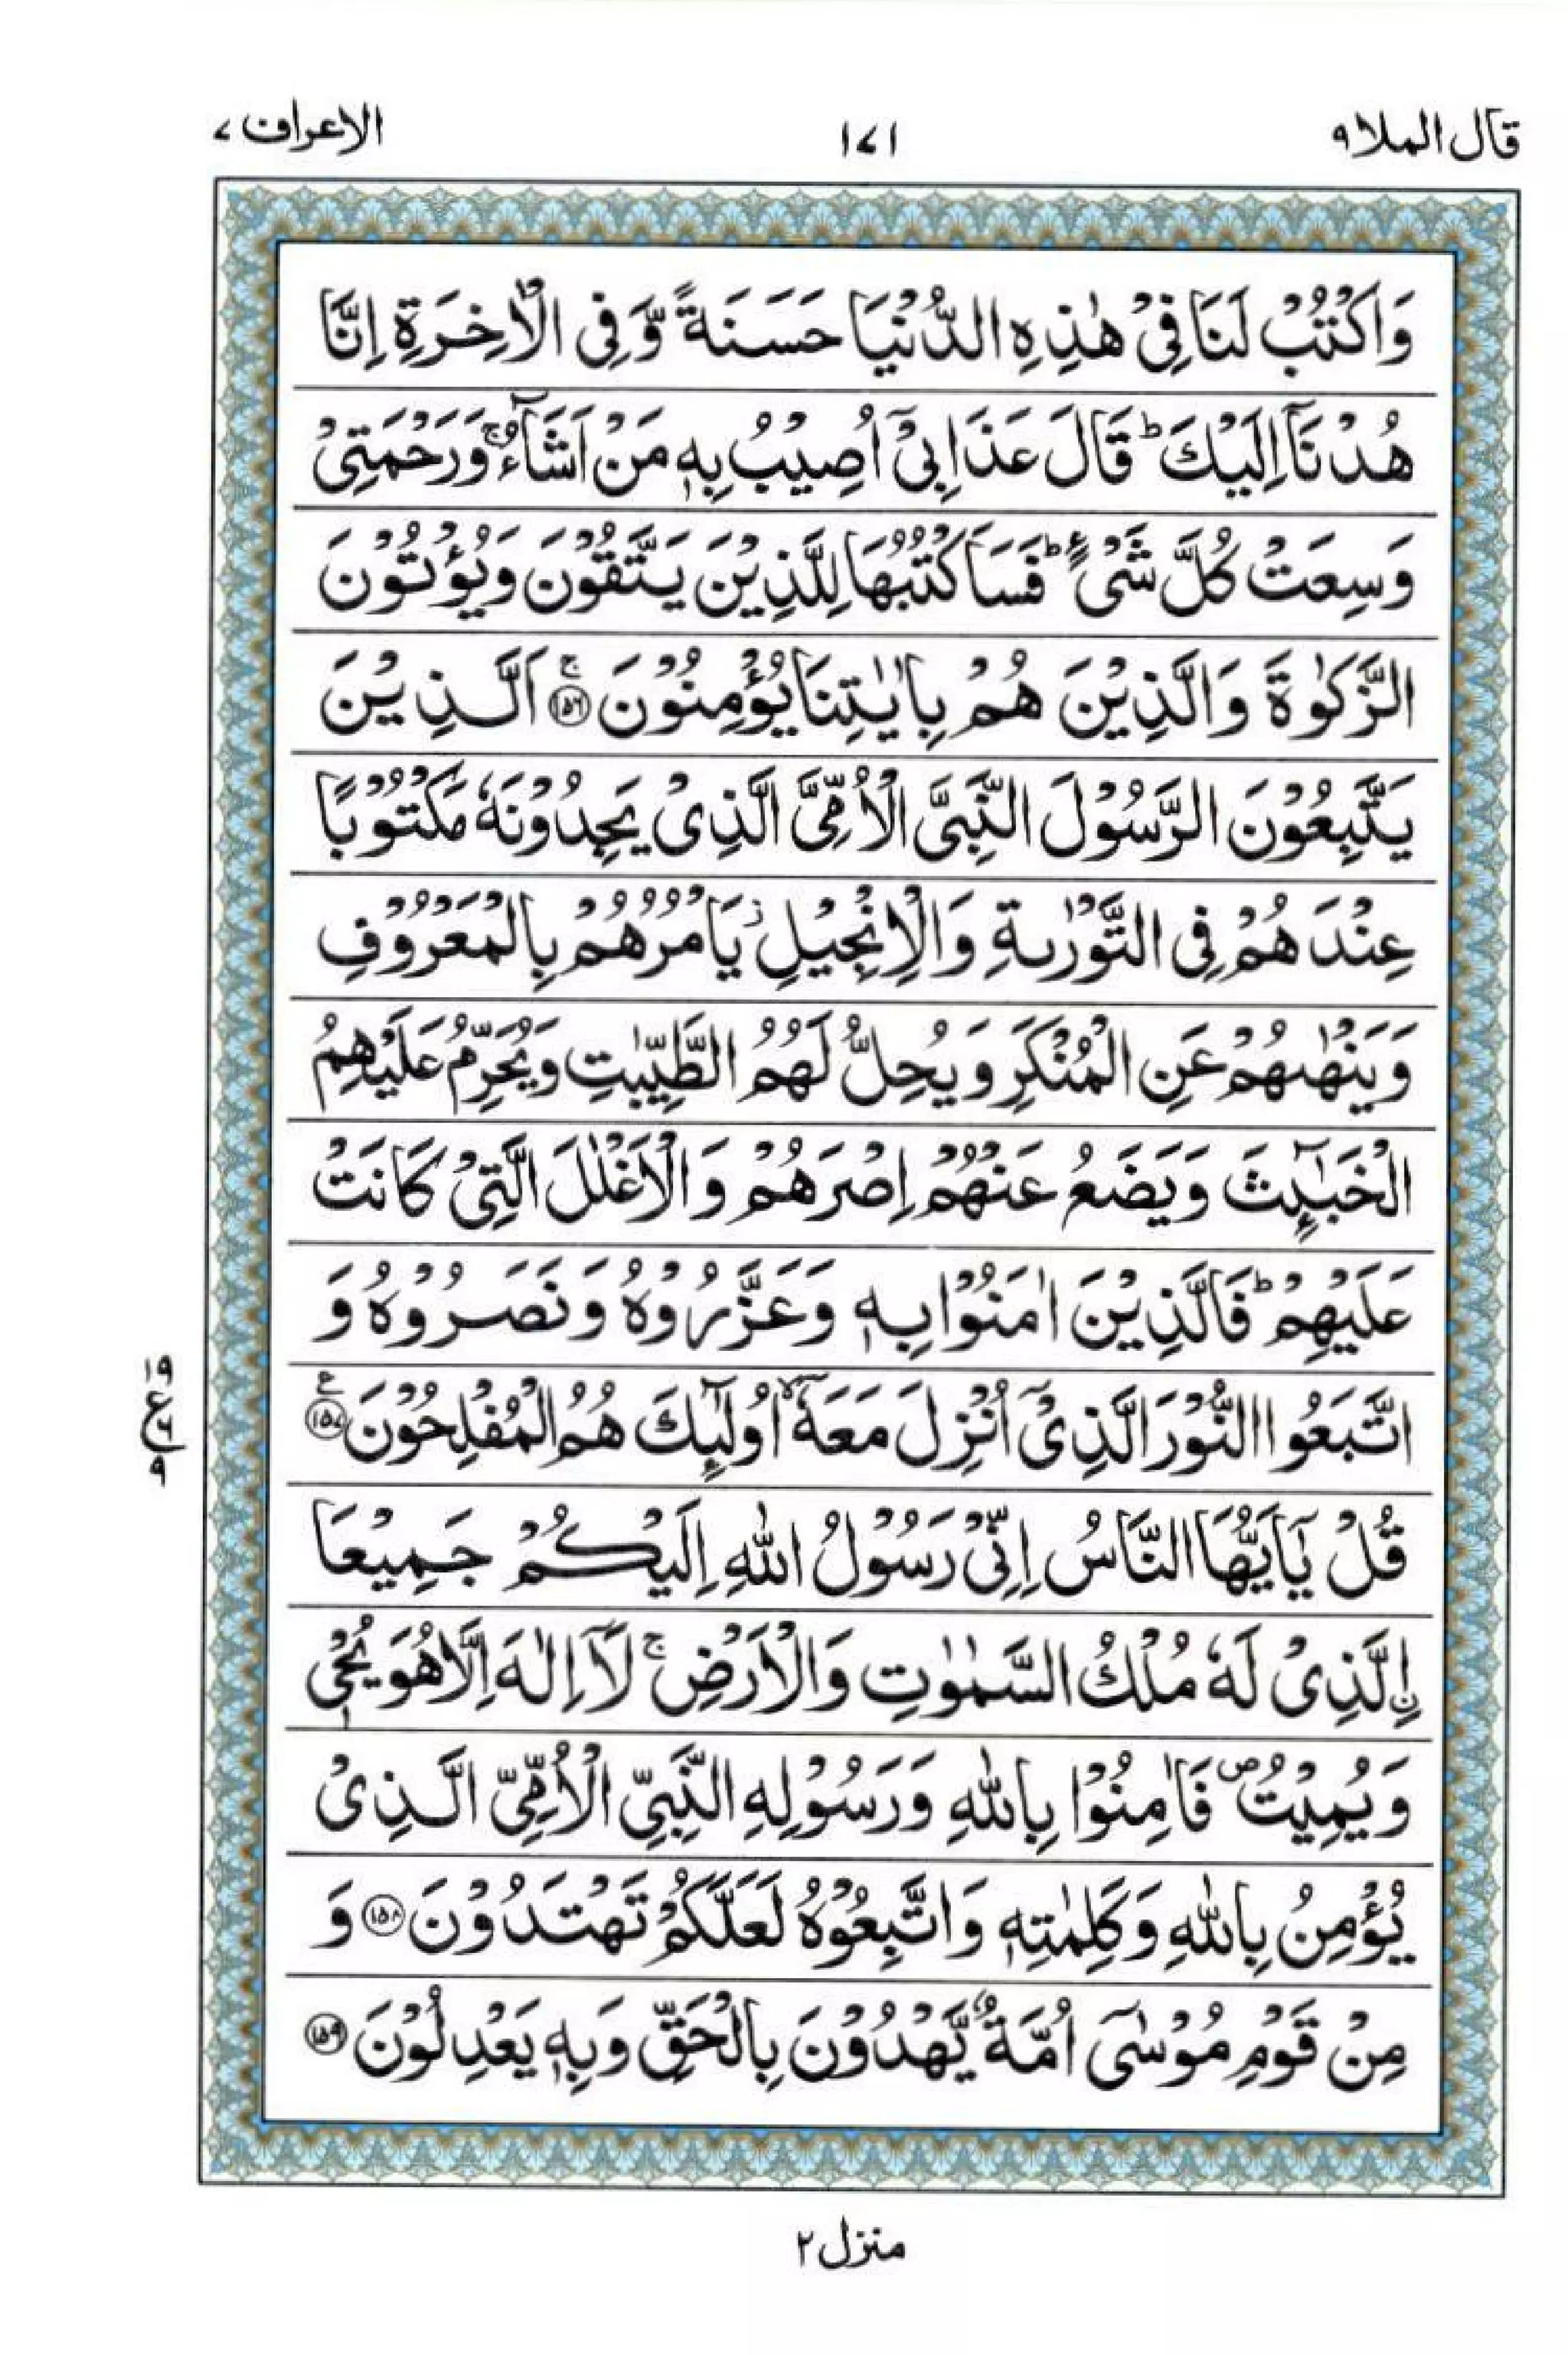 قال الملا ٩
١٧١
الاعراف ٧
وَاكْتُبْ لَنَا فِىْ هٰذِهِ الدُّنْيَا حَسَنَةً وَّ فِى الْاٰخِرَةِ اِنَّا
هُدْنَاۤ اِلَيْكَ ؕ قَالَ عَذَابِىْۤ اُصِيْبُ بِهٖ مَنْ اَشَآءُ ۚ وَرَحْمَتِىْ
وَسِعَتْ كُلَّ شَىْءٍ ؕ فَسَاَكْتُبُهَا لِلَّذِيْنَ يَتَّقُوْنَ وَيُؤْتُوْنَ
الزَّكٰوةَ وَالَّذِيْنَ هُمْ بِاٰيٰتِنَا يُؤْمِنُوْنَ ۚ ﴿١٥٦﴾ اَلَّذِيْنَ
يَتَّبِعُوْنَ الرَّسُوْلَ النَّبِىَّ الْاُمِّىَّ الَّذِىْ يَجِدُوْنَهٗ مَكْتُوْبًا
عِنْدَهُمْ فِى التَّوْرٰىةِ وَالْاِنْجِيْلِ ؗ يَاْمُرُهُمْ بِالْمَعْرُوْفِ
وَيَنْهٰىهُمْ عَنِ الْمُنْكَرِ وَيُحِلُّ لَهُمُ الطَّيِّبٰتِ وَيُحَرِّمُ عَلَيْهِمُ
الْخَبٰٓئِثَ وَيَضَعُ عَنْهُمْ اِصْرَهُمْ وَالْاَغْلٰلَ الَّتِىْ كَانَتْ
عَلَيْهِمْ ؕ فَالَّذِيْنَ اٰمَنُوْا بِهٖ وَعَزَّرُوْهُ وَنَصَرُوْهُ وَ
اتَّبَعُوا النُّوْرَ الَّذِىْۤ اُنْزِلَ مَعَهٗۤ ۙ اُولٰٓئِكَ هُمُ الْمُفْلِحُوْنَ ﴿١٥٧﴾ ع
قُلْ يٰۤاَيُّهَا النَّاسُ اِنِّىْ رَسُوْلُ اللّٰهِ اِلَيْكُمْ جَمِيْعَا
ۨالَّذِىْ لَهٗ مُلْكُ السَّمٰوٰتِ وَالْاَرْضِ ۚ لَاۤ اِلٰهَ اِلَّا هُوَ يُحْىٖ
وَيُمِيْتُ ۪ فَاٰمِنُوْا بِاللّٰهِ وَرَسُوْلِهِ النَّبِىِّ الْاُمِّىِّ الَّذِىْ
يُؤْمِنُ بِاللّٰهِ وَكَلِمٰتِهٖ وَاتَّبِعُوْهُ لَعَلَّكُمْ تَهْتَدُوْنَ ﴿١٥٨﴾ وَ
مِنْ قَوْمِ مُوْسٰٓى اُمَّةٌ يَّهْدُوْنَ بِالْحَقِّ وَبِهٖ يَعْدِلُوْنَ ﴿١٥٩﴾
١٩
ع
٩
منزل ٢